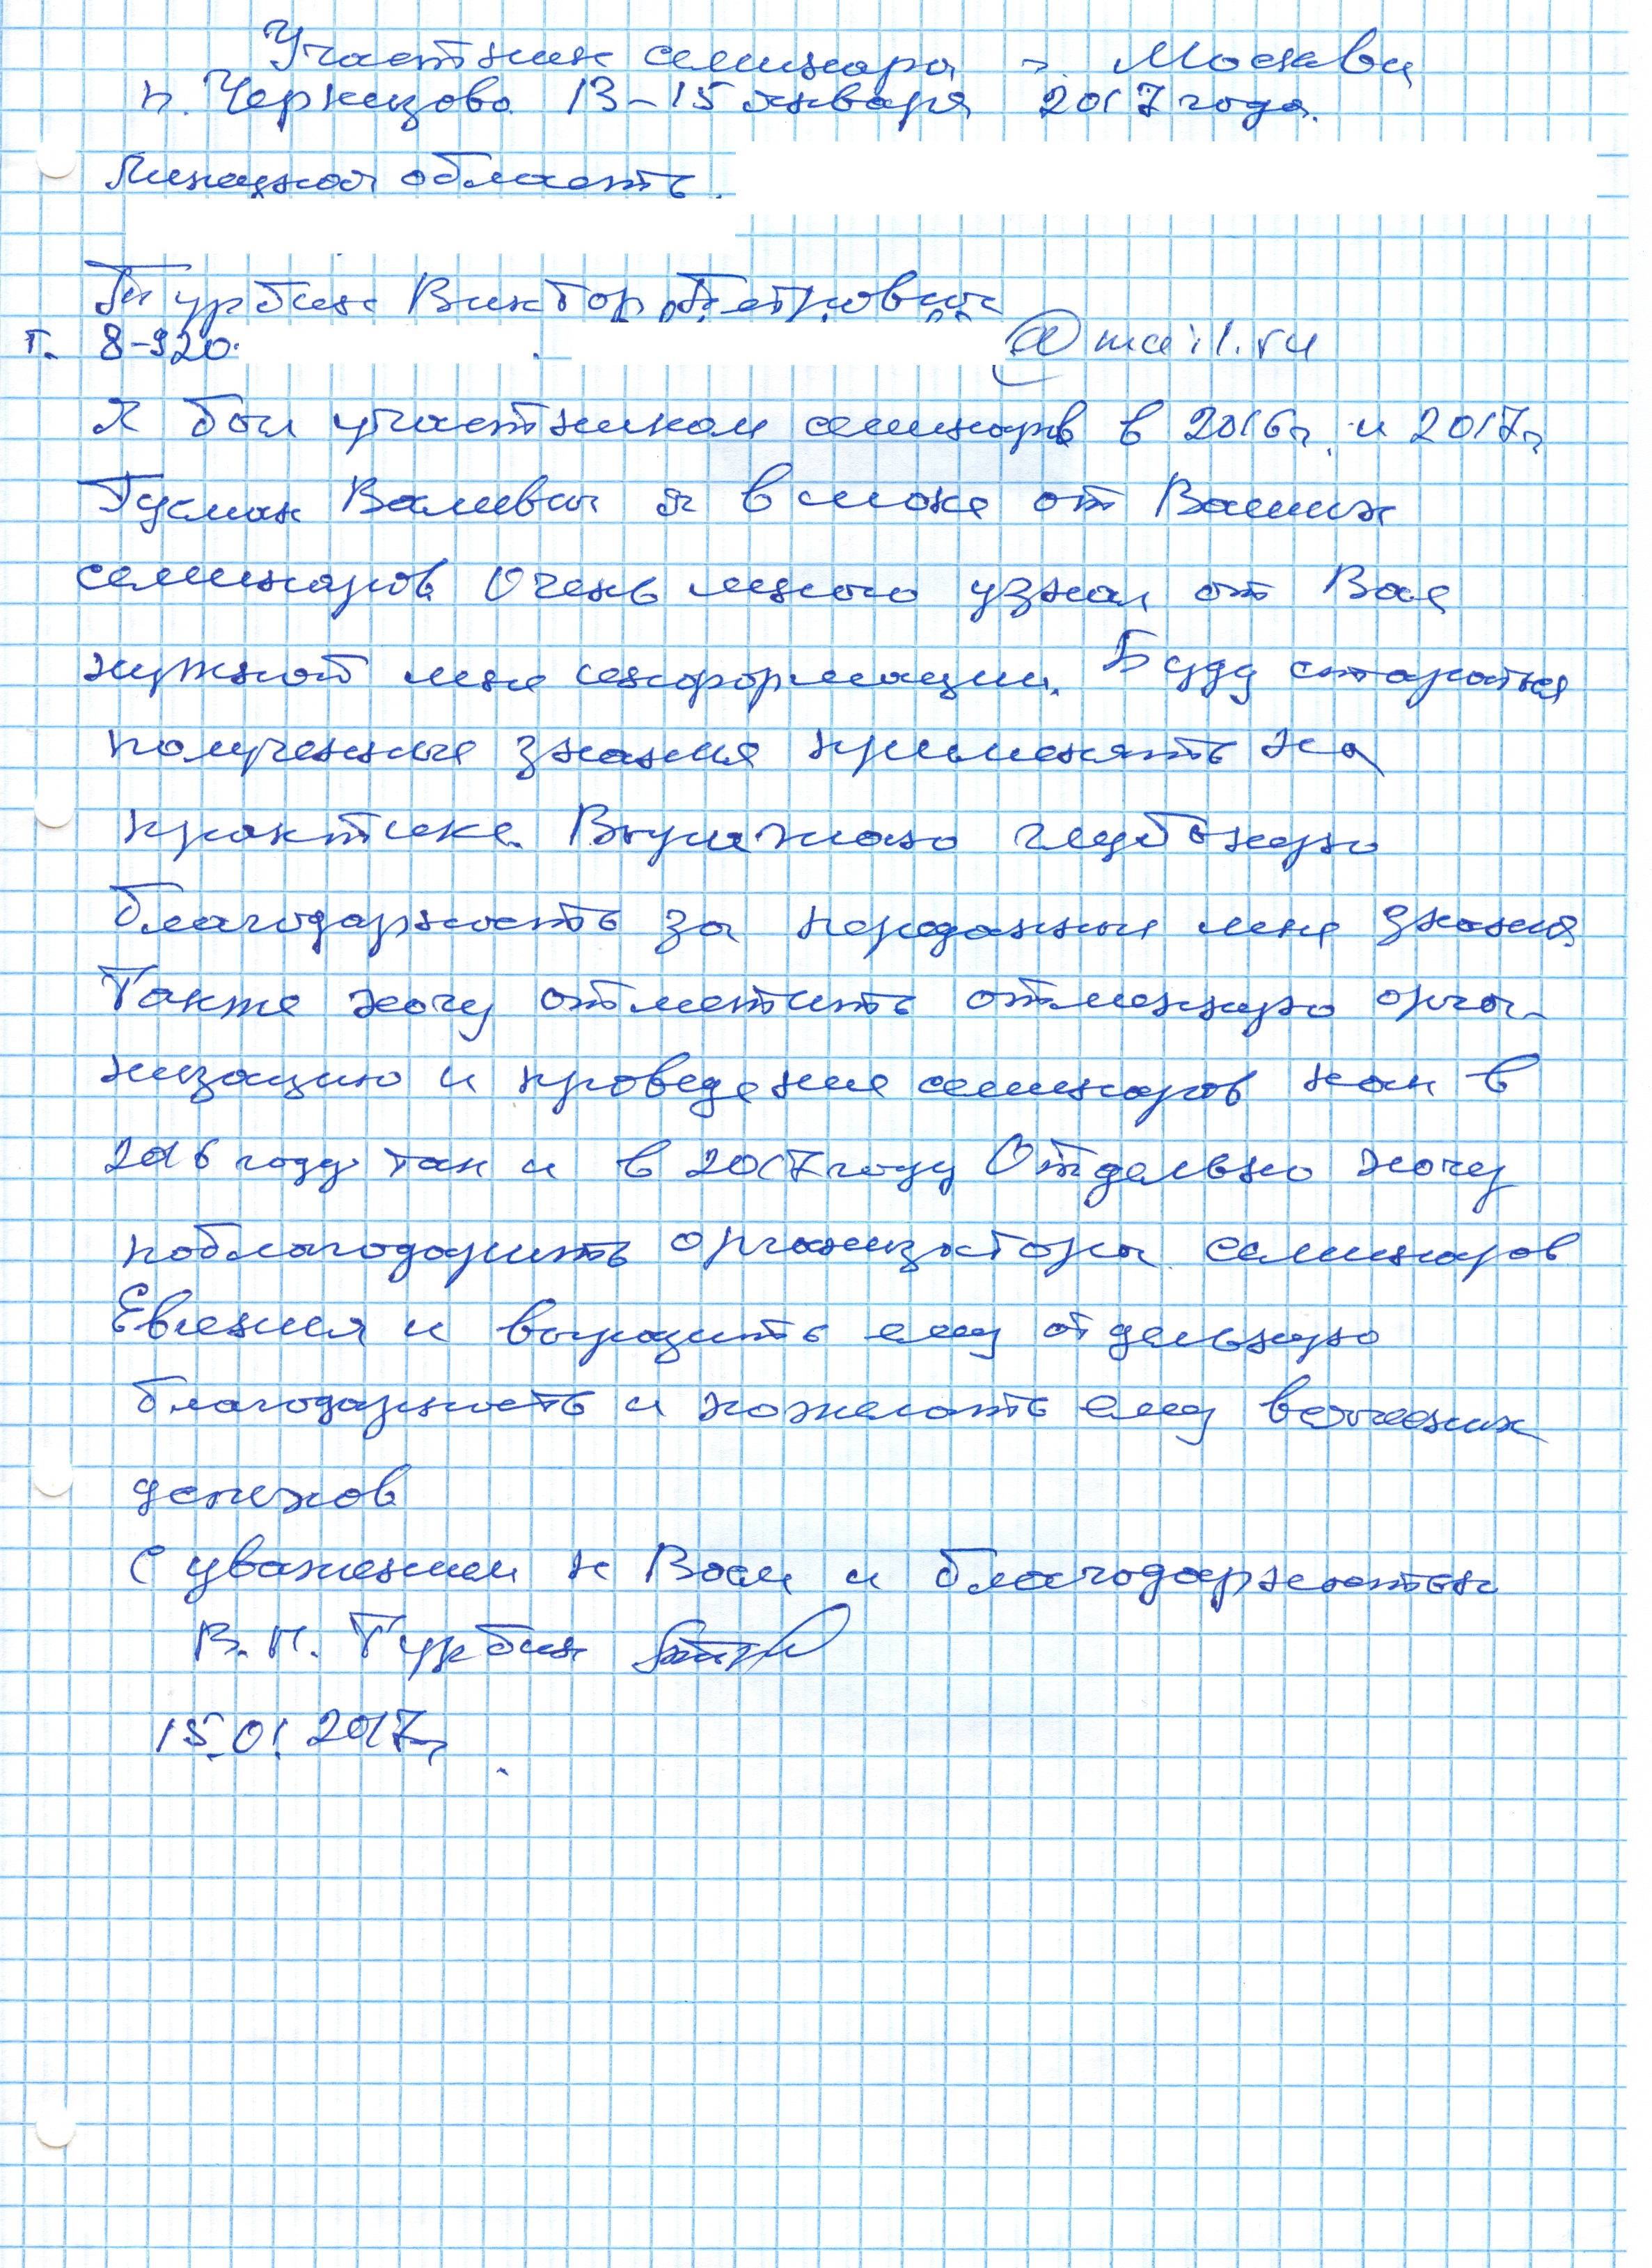 Участник семинара г. Москва
п. Черкизово 13-15 января 2017 года.
Липецкая область.
Турбин Виктор Петрович
т. 8-920. @mail.ru
Я был участником семинаров в 2016г. и 2017г
Гусман Валевич я в шоке от Ваших
семинаров Очень много узнал от Вас
нужной мне информации. Буду стараться
полученные знания применять на
практике. Выражаю глубокую
благодарность за переданные мне знания
Также хочу отметить отменную орга-
низацию и проведение семинаров как в
2016 году так и в 2017 году Отдельно хочу
поблагодарить организатора семинаров
Евгения и выразить ему отдельную
благодарность и пожелать ему
успехов
С уважением к Вам и благодарностью
В.П. Турбин
15.01.2017г